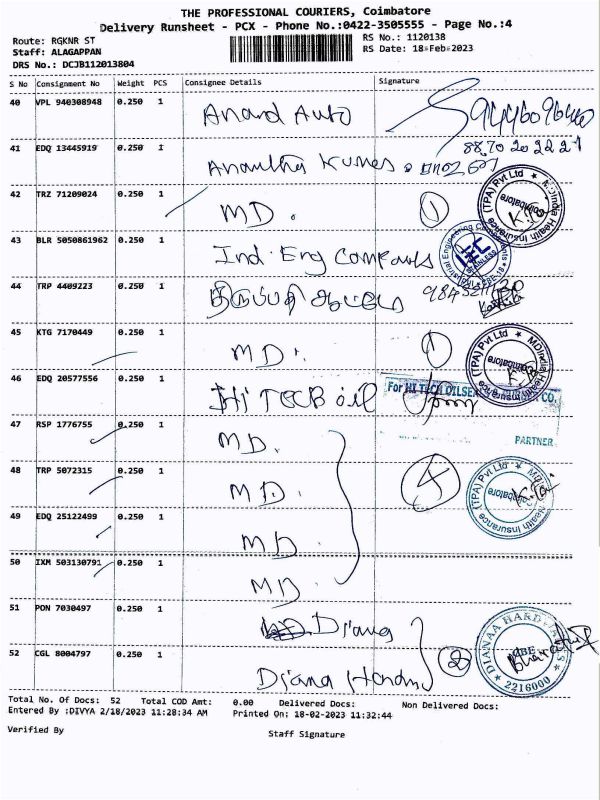 THE PROFESSIONAL COURIERS, Coimbatore
Delivery Runsheet - PCX - Phone No.:0422-3505555 - Page No.:4
Route: RGKNR ST RS No.: 1120138
Staff: ALAGAPPAN RS Date: 18-Feb-2023
DRS No.: DCJB112013804
S No Consignment No Weight PCS Consignee Details Signature
40 VPL 940308948 0.250 1 Anand Auto
41 EDQ 13445919 0.250 1 Anantha
88,70 20 22 27
42 TRZ 71209024 0.250 1 MD. 1
MDIndia Health Insurance (TPA) Pvt Ltd Coimbatore
43 BLR 5050861962 0.250 1 Ind. Eng
44 TRP 4409223 0.250 1 திருப்பதி
45 KTG 7170449 0.250 1 MD. 1
MDIndia Health Insurance (TPA) Pvt Ltd Coimbatore
46 EDQ 20577556 0.250 1 Hi TECB oil
For HI TECH CO.
PARTNER
47 RSP 1776755 0.250 1 MD.
48 TRP 5072315 0.250 1 MD. 4
Health Insurance (TPA) Pvt Ltd Coimbatore
49 EDQ 25122499 0.250 1 MD.
50 IXM 503130791 0.250 1 MD.
51 PON 7030497 0.250 1 Diana
52 CGL 8004797 0.250 1 Diana 2
DIANAA
2216000
Total No. Of Docs: 52 Total COD Amt: 0.00 Delivered Docs: Non Delivered Docs:
Entered By :DIVYA 2/18/2023 11:28:34 AM Printed On: 18-02-2023 11:32:44
Verified By Staff Signature